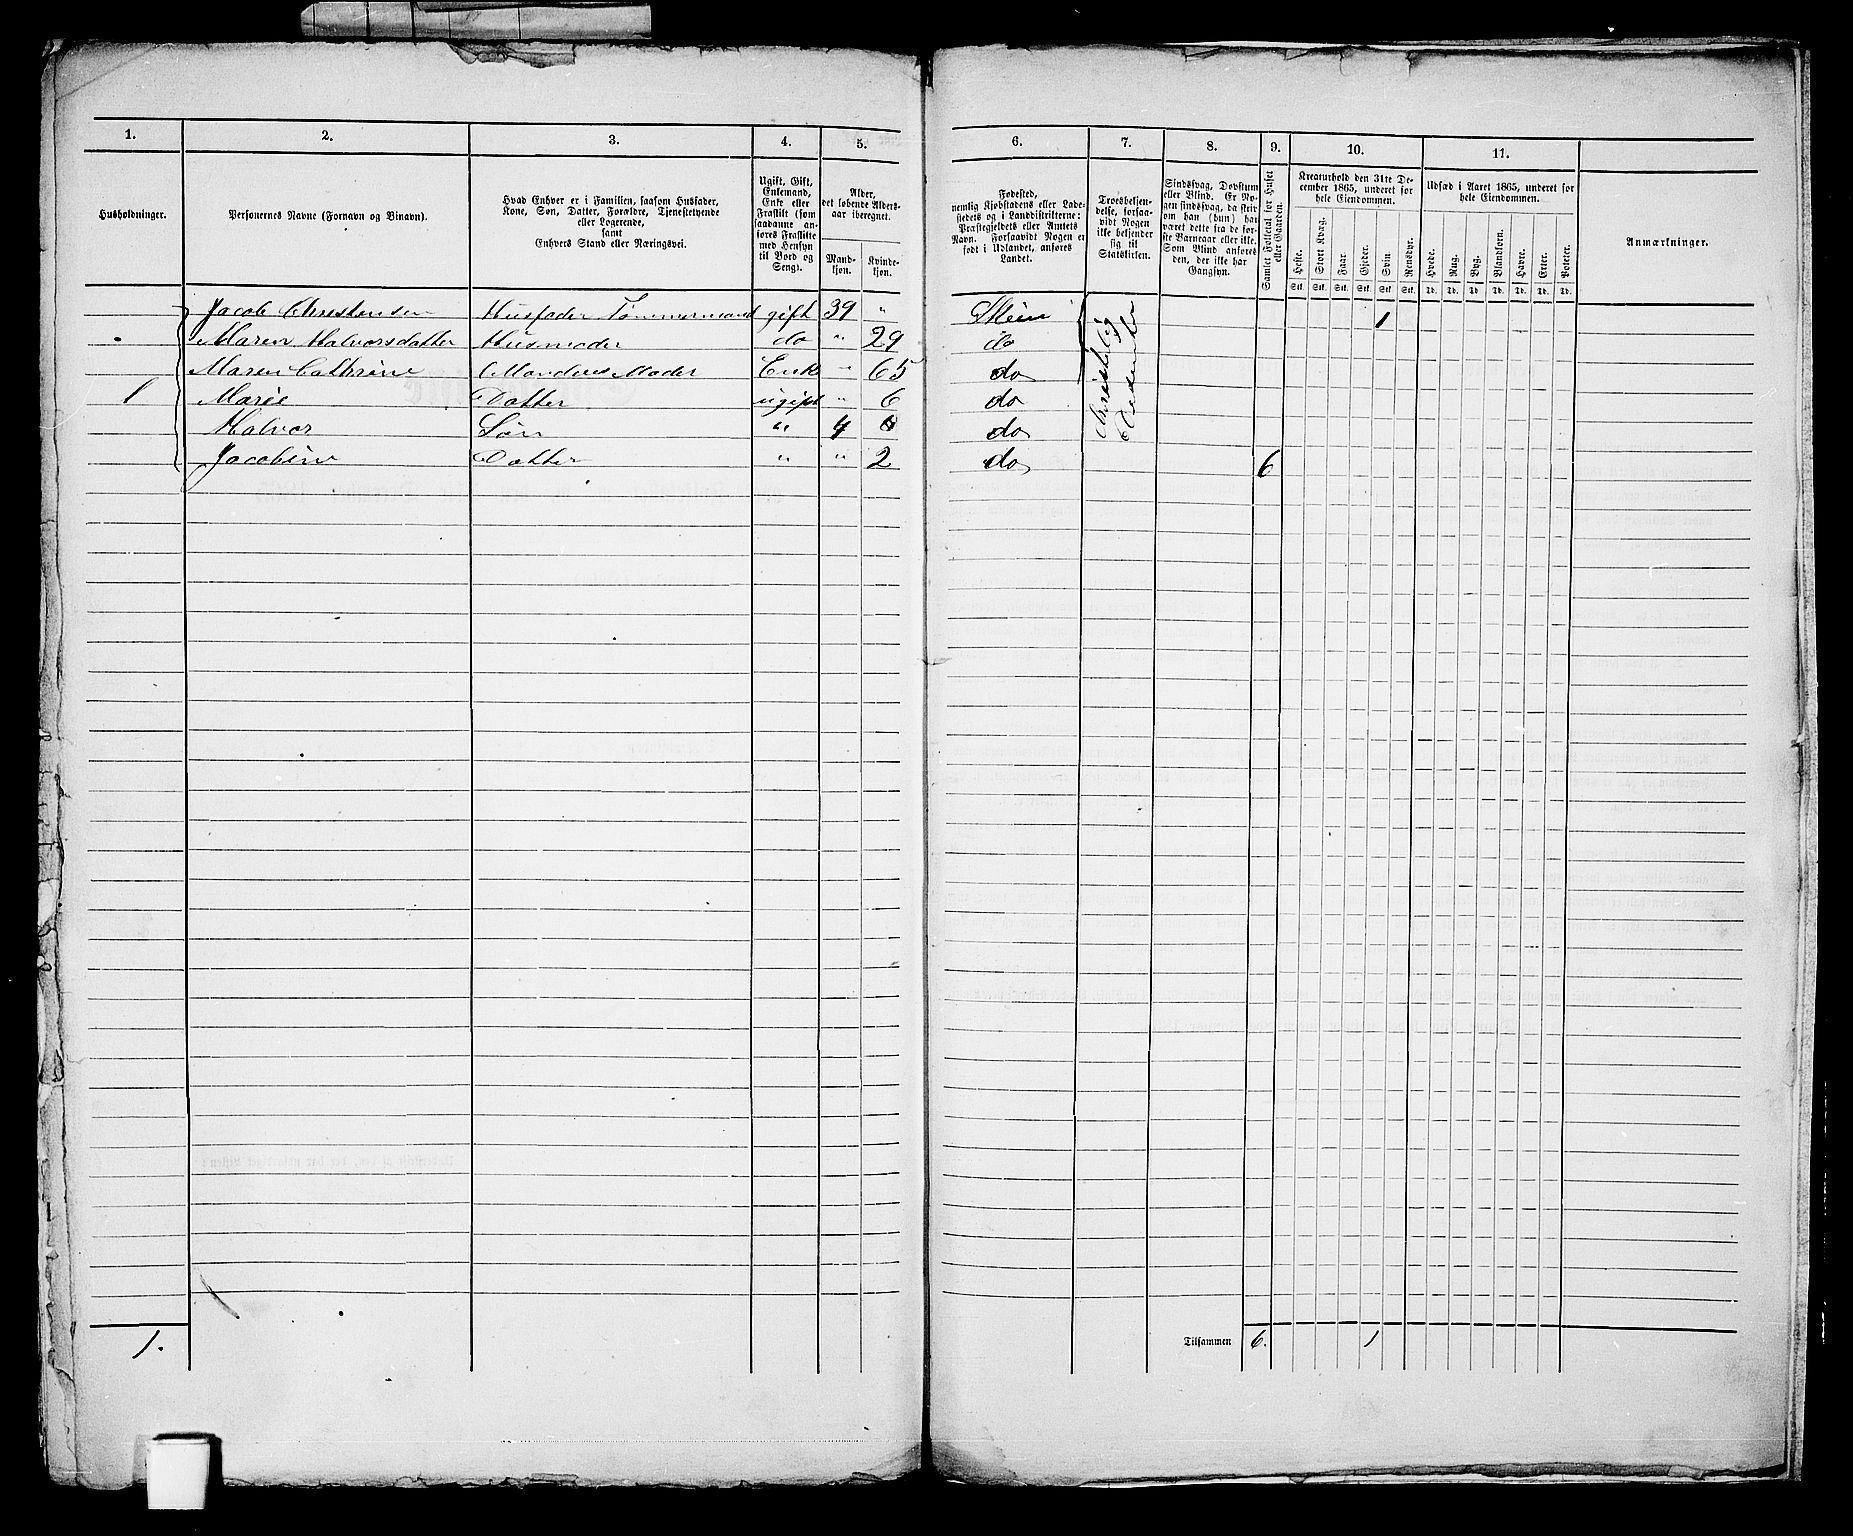 1. 2. 3. 4. 5. 6. 7. 8. 9. 10. 11.
Husholdninger.
Personernes Navne (Fornavn og Binavn).
Hvad Enhver er i Familien, saasom Husfader,
Kone, Søn, Datter, Forældre, Tjenestetyende
eller Logerende,
samt
Enhvers Stand eller Næringsvei.
Ugift, Gift,
Enkemand,
Enke eller
Fraskilt (som
saadanne an-
føres Fraskilte
med Hensyn
til Bord og
Seng).
Alder,
det løbende Alders-
aar iberegnet.
Mand-
kjøn.
Kvinde-
kjøn.
Fødested,
nemlig Kjøbstadens eller Lade-
stedets og i Landdistrikterne:
Præstegjeldets eller Amtets
Navn. Forsaavidt Nogen er
født i Udlandet, anføres
Landet.
Troesbekjen-
delse, forsaa-
vidt Nogen
ikke bekjender
sig til
Statskirken.
Sindssvag, Døvstum
eller Blind. Er No-
gen sindssvag, da skriv
om han (hun) har
været dette fra de før-
ste Barneaar eller ikke.
Som Blind anføres
den, der ikke har
Gangsyn.
Samlet Folketal for Huset
eller Gaarden.
Kreaturhold den 31te De-
cember 1865, underet for
hele Eiendommen.
Heste. Stort Kvæg. Faar. Gjeder. Svin. Rensdyr.
Stk. Stk. Stk. Stk. Stk. Stk.
Udsæd i Aaret 1865, underet for
hele Eiendommen.
Hvede. Rug. Byg. Blandkorn. Havre. Erter. Poteter.
Td. Td. Td. Td. Td. Td. Td.
Anmærkninger.
Jacob Christensen Husfader Tømmermand gift 39 " Skien 1
Maren Halvorsdatter Husmoder do " 29 do
Maren Cathrine Mandens Moder Enk " 65 do
1 Marie Datter ugift " 6 do
Halvor Søn " 4 do
Jacobine Datter " " 2 do 6
Christelig
1. Tilsammen 6. 1